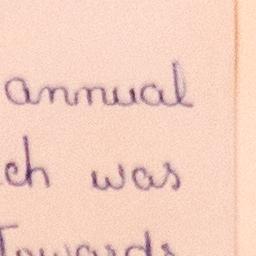 annual
ch was
Towards